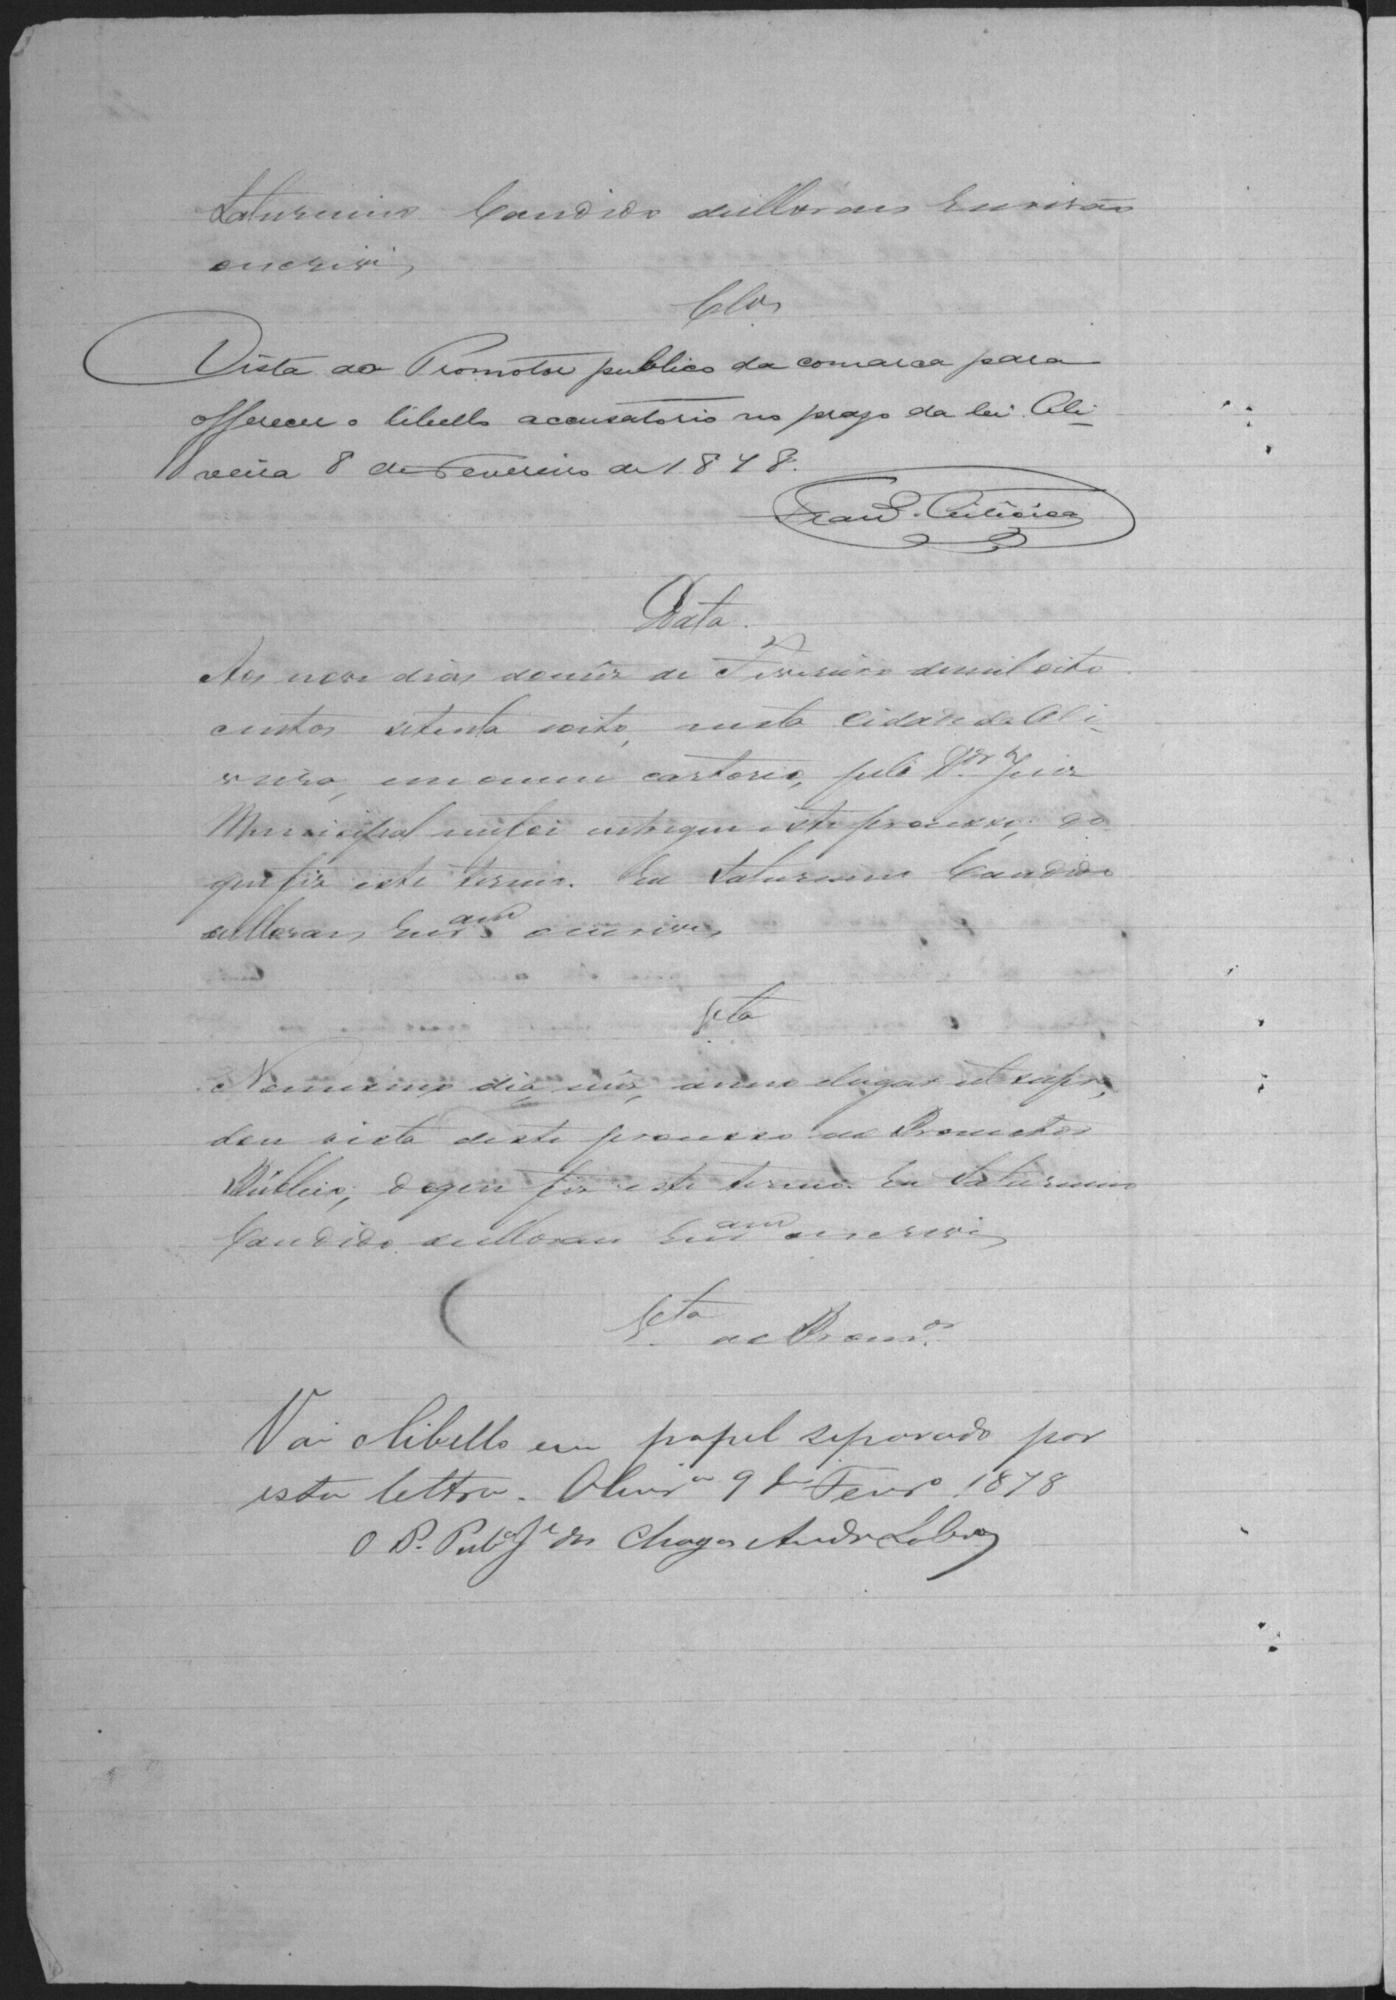 Saturnino Candido de Moraes Escrivão
o escrivi
Clos
Vista ao Promotor publico da comarca para
offerecer o libello accusatorio no praso da lei. Oli-
veira 8 de Fevereiro de 1878.
Data.
Aos nove dias do mez de Fevereiro de mil oito
centos setenta e oito, nesta Cidade de Oli-
veira, em o meu cartorio, pelo Dr. Juiz
Municipal me foi entregue este processo; do
que fiz este termo. Eu Saturnino Candido
de Moraes Escrivam o escrivi
Vta
No mesmo dia, mez, anno e lugar ut supra,
dou vista deste processo ao Promotor
Publico; do que fiz este termo. Eu Saturnino
Candido de Moraes Escrivam o escrivi
Vta ao Promor.
Vai o libello em papel separado por
esta lettra. Olivra 9 de Fevro 1878
O P. Pubco Fco das Chagas Andr